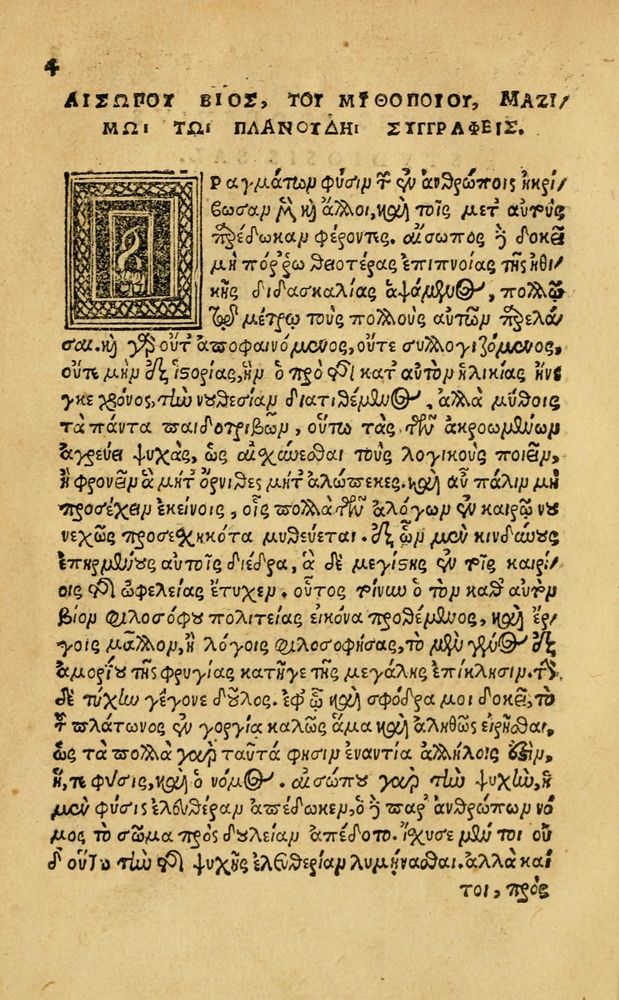 4
ΑΙΣΩΠΟΥ ΒΙΟΣ, ΤΟΥ ΜΥΘΟΠΟΙΟΥ, ΜΑΞΙ/
ΜΩΙ ΤΩΙ ΠΛΑΝΟΥΔΗΙ ΣΥΓΓΡΑΦΕΙΣ.
Πραγμάτων φύσιν τὴν ἐν ἀνθρώποις ἠκρί/
βωσαν μὲν καὶ ἄλλοι, καὶ τοῖς μετ' αὐτοὺς
παρέδωκαν φέροντες. αἴσωπος δὲ δοκεῖ
μὴ πόῤῥω θειοτέρας ἐπιπνοίας τῆς ἠθι/
κῆς διδασκαλίας ἁψάμενος, πολλῷ
τῷ μέτρῳ τοὺς πολλοὺς αὐτῶν παρελά/
σαι. καὶ γὰρ οὔτ' ἀποφαινόμενος, οὔτε συλλογιζόμενος,
οὔτε μὴν ἐξ ἱστορίας, ἣν ὁ πρὸ τῆς κατ' αὐτὸν ἡλικίας ἤνε
γκε χρόνος, τὴν νουθεσίαν διατιθέμενος, ἀλλὰ μύθοις
τὰ πάντα παιδοτριβῶν, οὕτω τὰς τῶν ἀκροωμένων
ἀγρεύει ψυχάς, ὡς αἰσχύνεσθαι τοὺς λογικοὺς ποιεῖν,
ἢ φρονεῖν ἃ μήτ' ὄρνιθες μήτ' ἀλώπεκες. καὶ αὖ πάλιν μὴ
προσέχειν ἐκείνοις, οἷς πολλὰ τῶν ἀλόγων ἐν καιρῷ νου
νεχῶς προσεχηκότα μυθεύεται. ἐξ ὧν μὲν κινδύνους
ἐπηρμένους αὐτοῖς διέδρα, ἃ δὲ μεγίστης ἐν τοῖς καιρί/
οις τῆς ὠφελείας ἔτυχεν. οὗτος τοίνυν ὁ τὸν καθ' αὑτὸν
βίον φιλοσόφου πολιτείας εἰκόνα προθέμενος, καὶ ἔρ/
γοις μᾶλλον, ἢ λόγοις φιλοσοφήσας, τὸ μὲν γένος ἐξ
ἀμορίου τῆς φρυγίας κατῆγε τῆς μεγάλης ἐπίκλησιν. τὴν
δὲ τύχην γέγονε δοῦλος. ἐφ' ᾧ καὶ σφόδρα μοι δοκεῖ, τὸ
τοῦ πλάτωνος ἐν γοργίᾳ καλῶς ἅμα καὶ ἀληθῶς εἰρῆσθαι,
ὡς τὰ πολλὰ γὰρ ταῦτά φησιν ἐναντία ἀλλήλοις ἐστιν,
ἥ, τε φύσις, καὶ ὁ νόμος. αἰσώπου γὰρ τὴν ψυχὴν, ἡ
μὲν φύσις ἐλευθέραν ἀπέδωκεν, ὁ δὲ παρ' ἀνθρώπων νό
μος τὸ σῶμα πρὸς δουλείαν ἀπέδοτο. ἴσχυσε μέν τοι οὐ
δ' οὕτω τὴν τῆς ψυχῆς ἐλευθερίαν λυμήνασθαι. ἀλλὰ καί
τοι, πρὸς